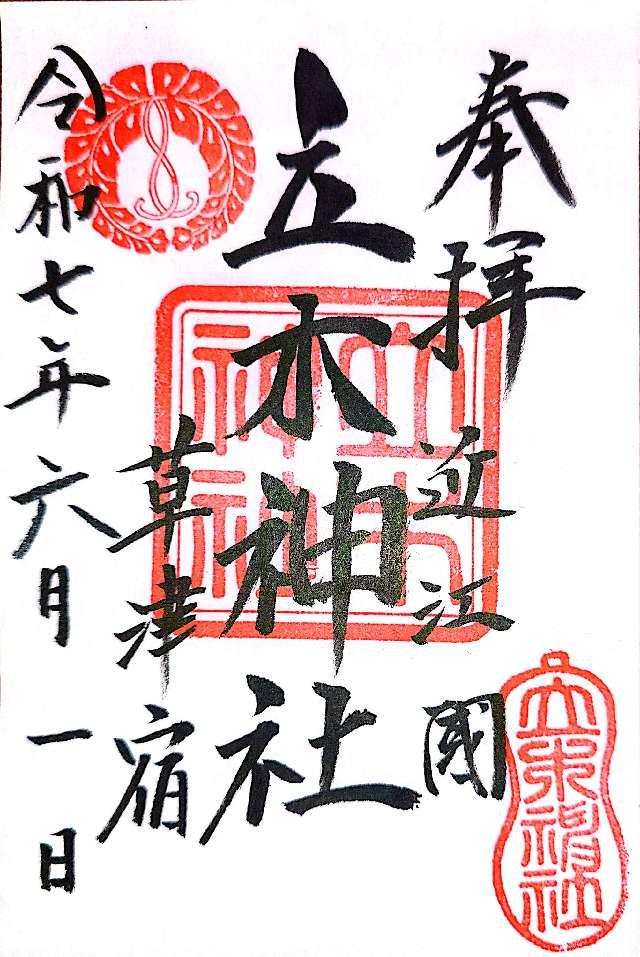 奉拝
近江國
立木神社
草津宿
令和七年六月一日
立木神社
立木神社